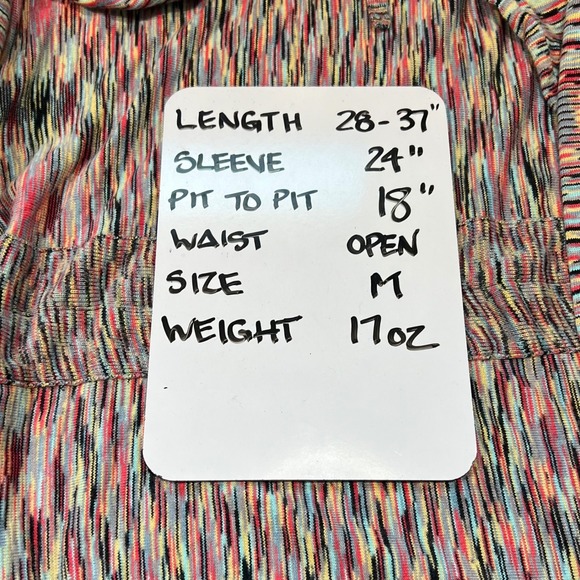 LENGTH 28-37"
SLEEVE 24"
PIT TO PIT 18"
WAIST OPEN
SIZE M
WEIGHT 17oz